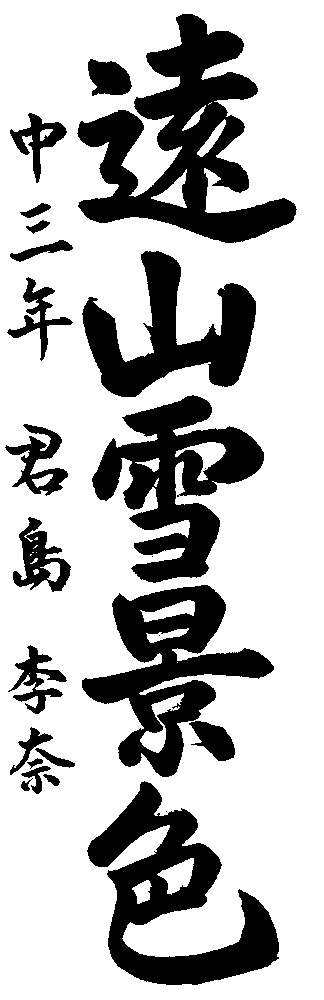 遠山雪景色
中三年 君島 李奈